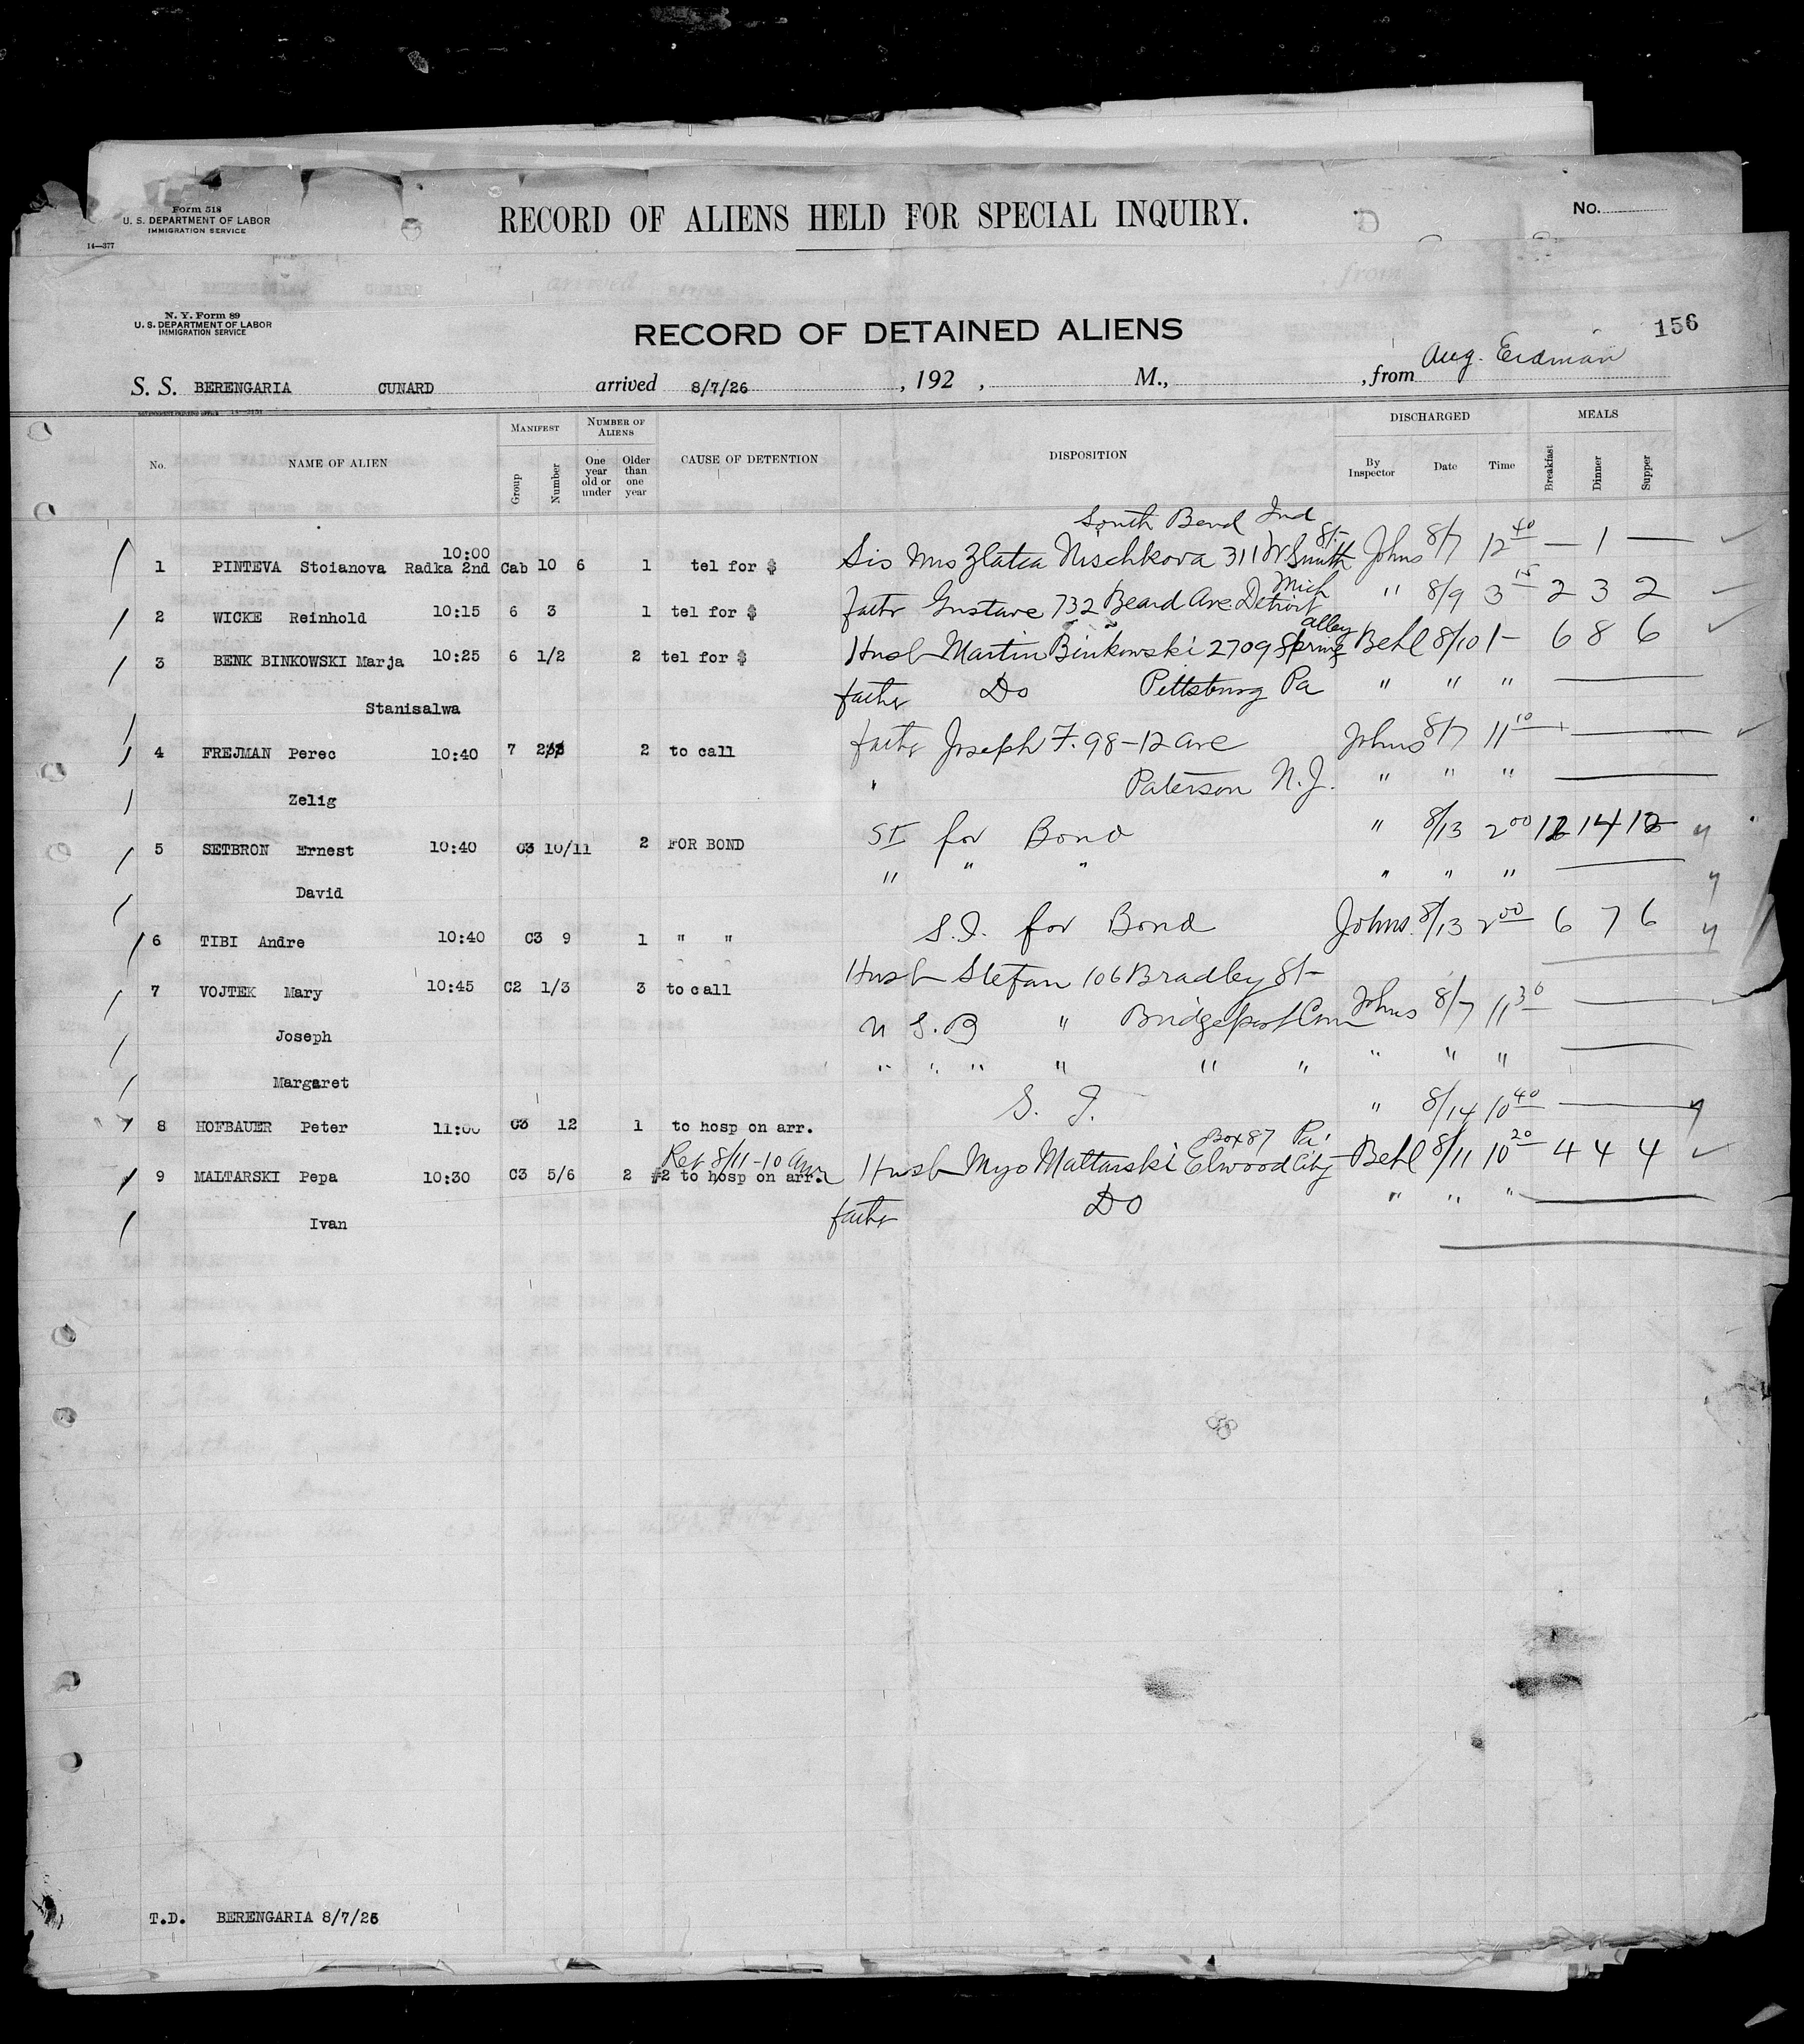 Form 518
U. S. DEPARTMENT OF LABOR
IMMIGRATION SERVICE
14—377
RECORD OF ALIENS HELD FOR SPECIAL INQUIRY.
No.
N. Y. Form 89
U. S. DEPARTMENT OF LABOR
IMMIGRATION SERVICE
RECORD OF DETAINED ALIENS
156
S. S. BERENGARIA CUNARD arrived 8/7/26, 192 , M., , from Aug. Erdman
No. NAME OF ALIEN MANIFEST Group Number NUMBER OF ALIENS One year old or under Older than one year CAUSE OF DETENTION DISPOSITION DISCHARGED By Inspector Date Time MEALS Breakfast Dinner Supper
South Bend Ind
1 PINTEVA Stoianova Radka 2nd Cab 10:00 10 6 1 tel for $ Sis Mrs Zlatca Nischkova 311 W Smith St. Johns 8/7 12 40 — 1 —
2 WICKE Reinhold 10:15 6 3 1 tel for $ fathr Gustave 732 Beard Ave. Detroit Mich " 8/9 3 15 2 3 2
3 BENK BINKOWSKI Marja 10:25 6 1/2 2 tel for $ Husb Martin Binkowski 2709 Spring alley Behl 8/10 1— 6 8 6
Stanisalwa father Do Pittsburg Pa " " "
4 FREJMAN Perec 10:40 7 2 2 to call fathr Joseph F. 98–12 ave Johns 8/7 11 10
Zelig " Paterson N.J. " " "
5 SETBRON Ernest 10:40 C3 10/11 2 FOR BOND SI for Bond " 8/13 2 00 12 14 12
David " " " " " "
6 TIBI Andre 10:40 C3 9 1 " " S.I. for Bond Johns. 8/13 2 00 6 7 6
7 VOJTEK Mary 10:45 C2 1/3 3 to call Husb Stefan 106 Bradley St
Joseph U S. B " Bridgeport Conn Johns 8/7 11 30
Margaret " " " " " " " " "
8 HOFBAUER Peter 11:00 C3 12 1 to hosp on arr. S. I. " 8/14 10 40
Ret 8/11–10 Am Box 87 Pa.
9 MALTARSKI Pepa 10:30 C3 5/6 2 #2 to hosp on arr. Husb Myo Maltarski Elwood City Behl 8/11 10 20 4 4 4
Ivan father Do " " "
T.D. BERENGARIA 8/7/26